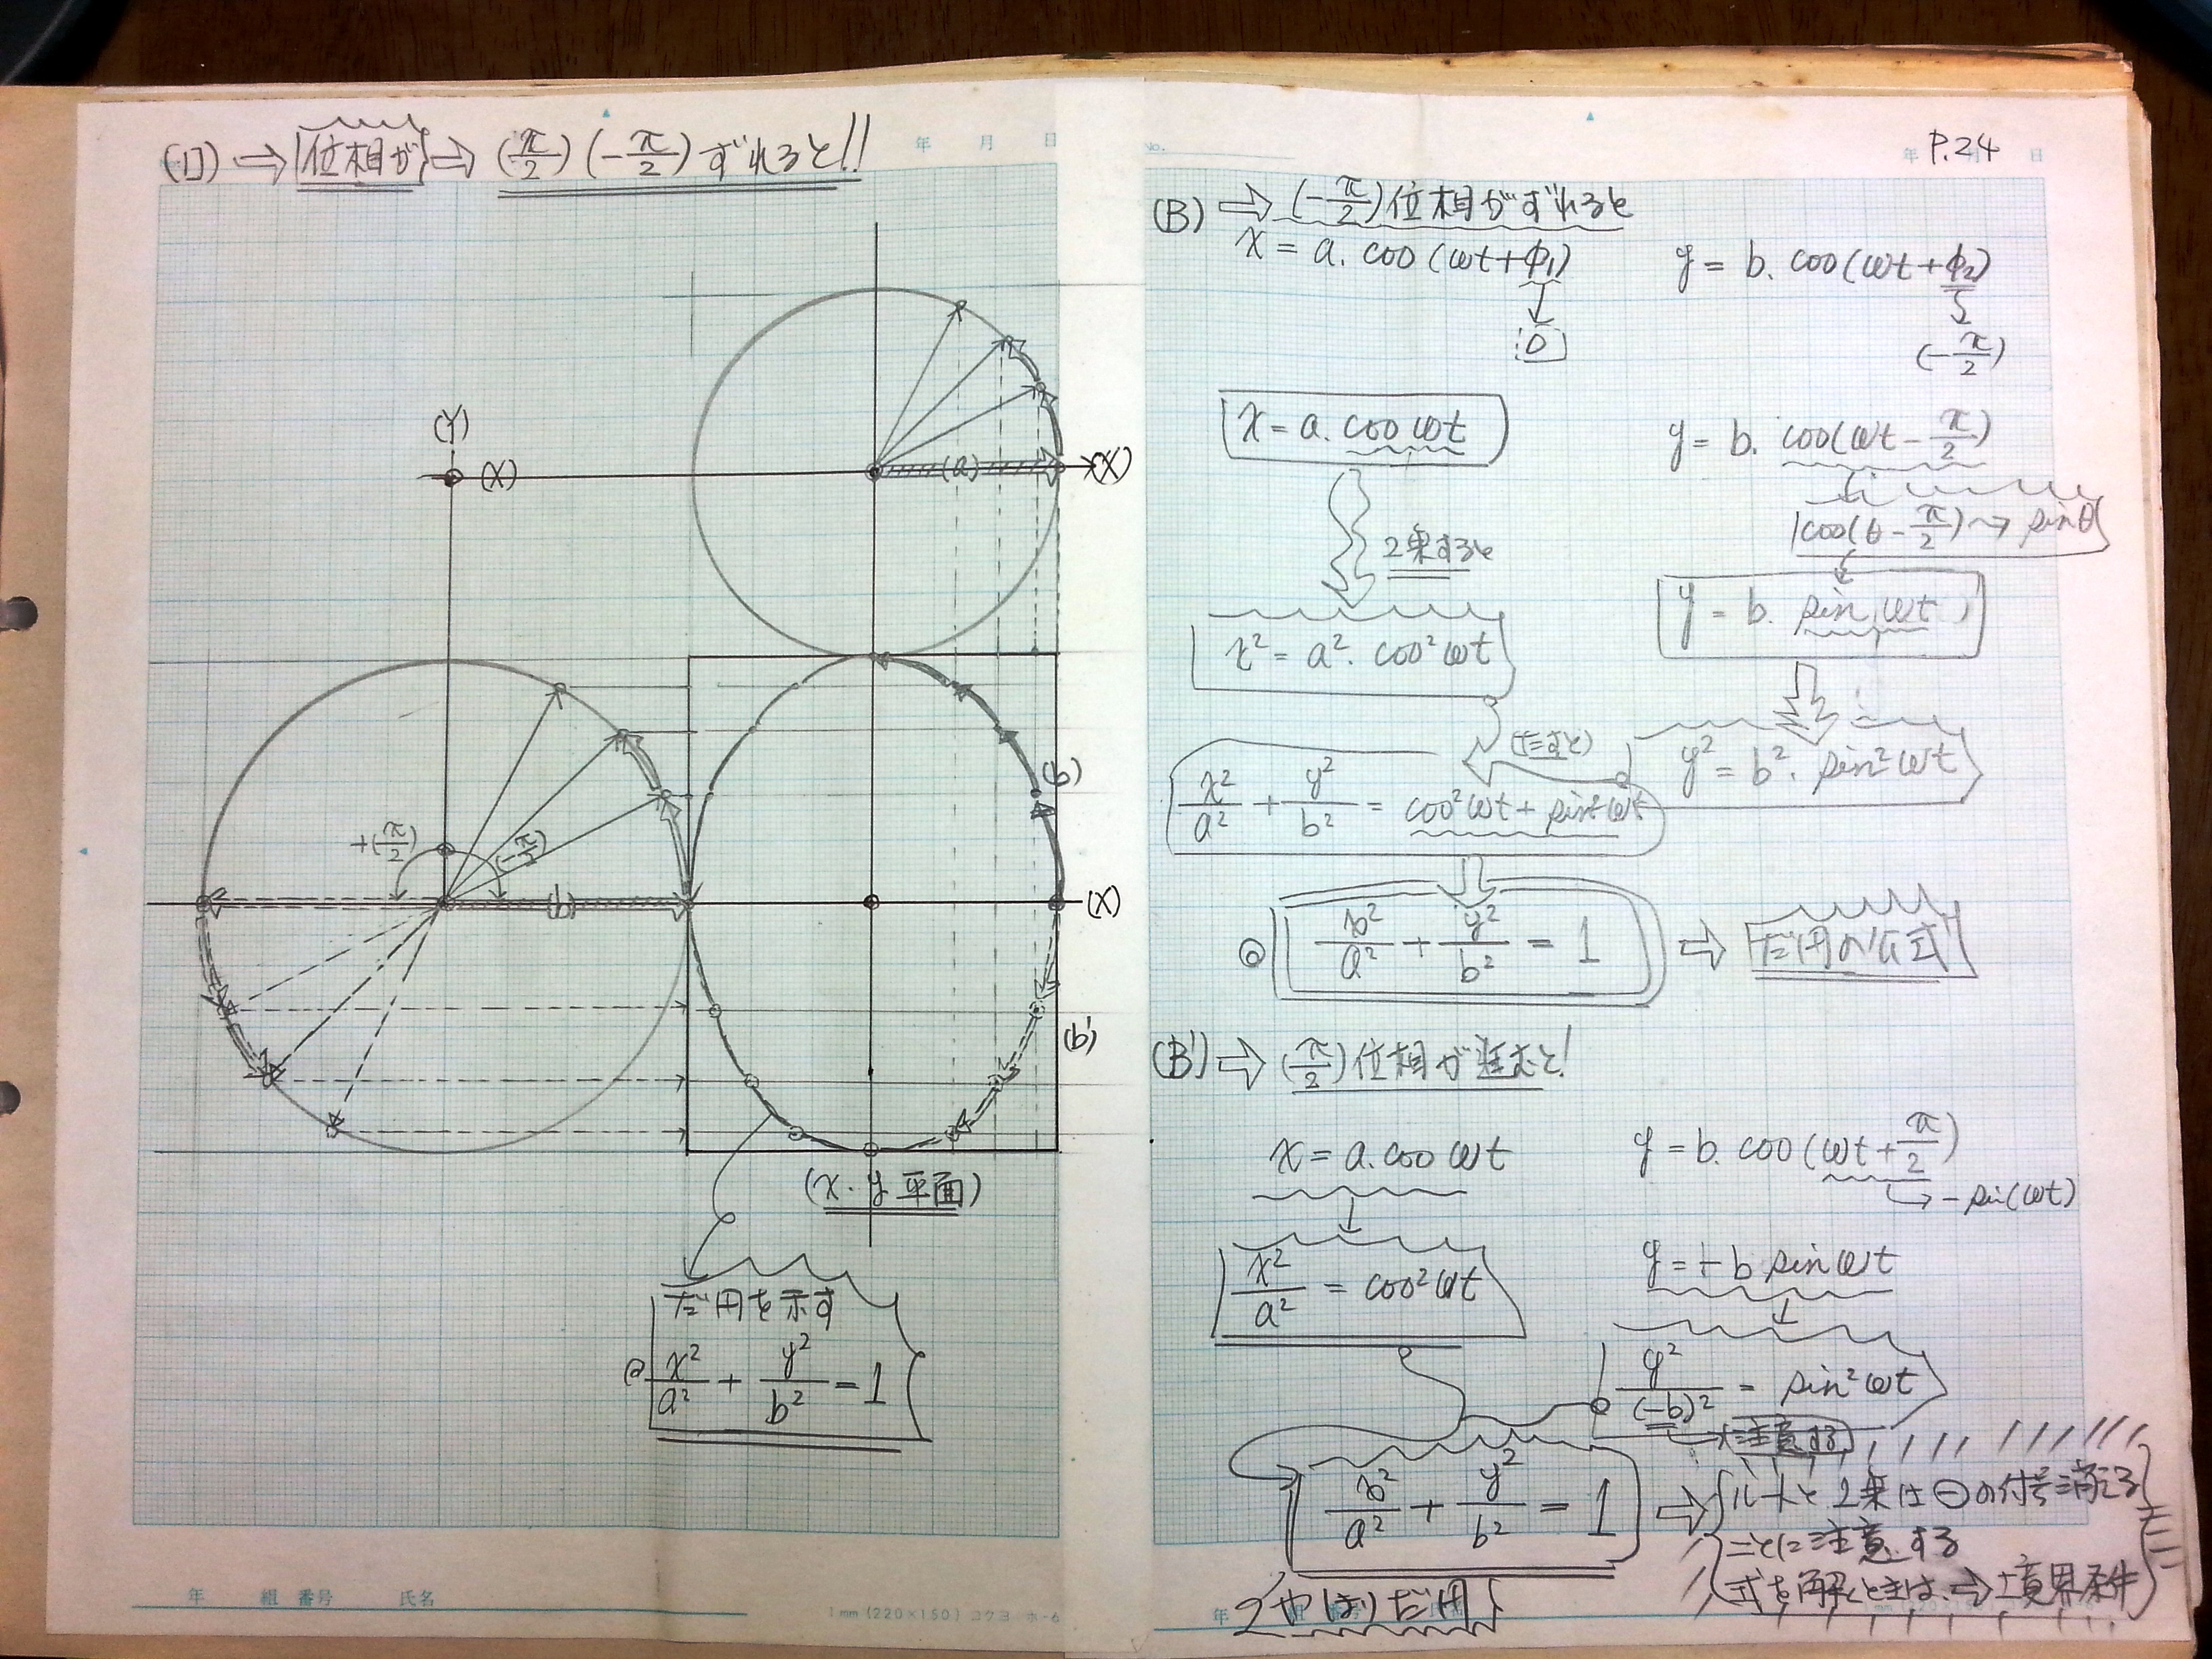 (ロ) ⇒ 位相が ⇒ (π/2) (-π/2) ずれると!!
年 月 日
(Y)
(X)
(a)
(X)
+(π/2)
(-π/2)
(b)
(b)
(X)
(b')
(x・y 平面)
だ円を示す
◎ x²/a² + y²/b² = 1
年 組 番号 氏名
1mm (220×150) コクヨ ホ-6
No.
年 月 日
P.24
(B) ⇒ (-π/2) 位相がずれると
x = a. cos (ωt+φ1) y = b. cos (ωt+φ2)
0
(-π/2)
x = a. cos ωt y = b. cos(ωt - π/2)
cos(θ - π/2) → sinθ
2乗すると
y = b. sin ωt
x² = a². cos²ωt
(たすと)
y² = b². sin²ωt
x²/a² + y²/b² = cos²ωt + sin²ωt
◎ x²/a² + y²/b² = 1 ⇒ だ円の公式
(B') ⇒ (π/2) 位相が進むと!
x = a. cos ωt y = b. cos (ωt + π/2)
→ - sin(ωt)
x²/a² = cos²ωt y = - b sin ωt
y²/(-b)² = sin²ωt
注意する
x²/a² + y²/b² = 1 ⇒ ルートと2乗は⊖の符号消える
ことに注意する
式を解くときは、⇒ 境界条件
やはりだ円
年 組 番号